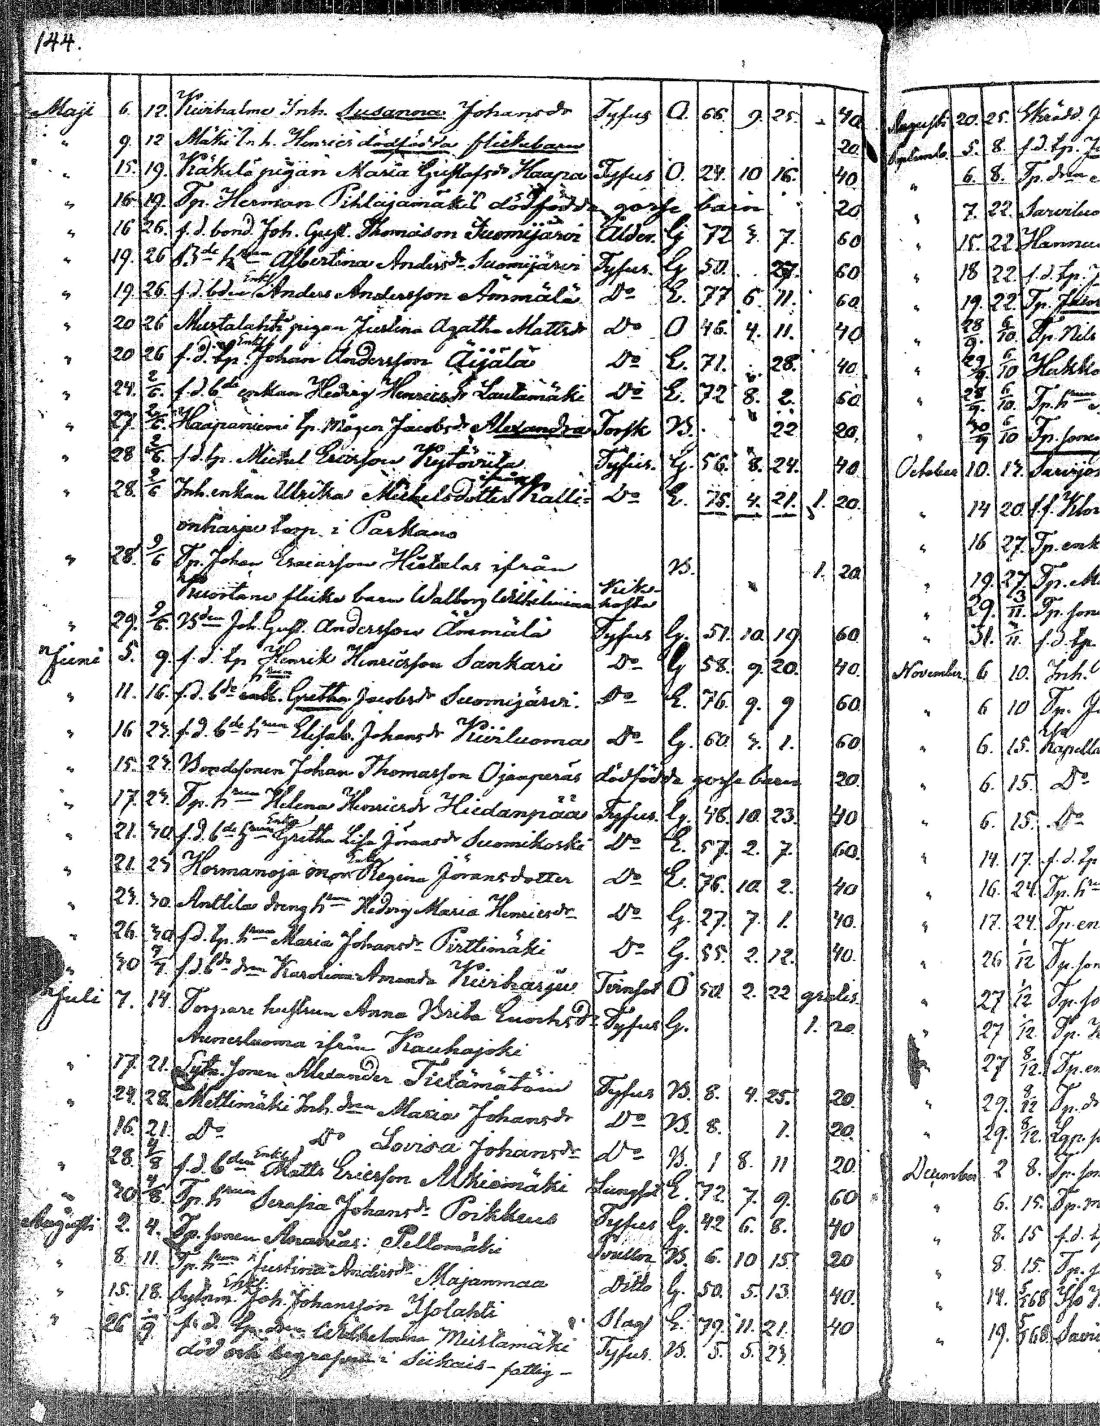 144.
Maji 6. 12. Kivihalme Inh. Susanna Johansdr Tyfus O. 66. 9. 25. - 40
" 9. 12 Mäki Inh. Henrics dödfödda flickebarn 20.
" 15. 19. Käkelä pigan Maria Gustafsdr Haapa Tyfus O. 24. 10 16. 40
" 16 19. Tp. Herman Pihlajamäkis dödfödda gosse barn 20
" 16 26. f.d. bond. Joh. Gust. Thomasson Suomijärvi Ålder. G 72 3. 7. 60
" 19. 26 Bde hrun Albertina Andersdr Suomijärvi Tyfus. G 50. 27. 60
" 19. 26. f.d. bden Enkl Anders Andersson Ämmälä Do E. 77 6. 11. 60
" 20 26 Mustalahti pigan Justina Agatha Mattsdr Do O 46. 4. 11. 40
" 20 26 f.d. tp. Enkl. Johan Andersson Äijälä Do E. 71. 28. 40.
" 24. 2/6. f.d. bde enkan Hedvig Henricsdr Lautamäki Do E. 72 8. 2. 60
" 27. 2/6. Haapaniemi tp. mågen Jacobs dr Alexandra Torsk B. 22 20.
" 28 2/6. f.d. tp. Michel Ericsson Kytöviita Tyfus. G. 56. 8. 24. 40
" 28. 2/6 Inh. enkan Ulrika Michelsdotter ifrån Kalli- Do E. 75. 4. 21. 1. 20.
onharju torp i Parkano
" 28. 9/6 Tp. Johan Esaiasson Hietalas ifrån B. 1. 20
Kuortane flicke barn Walborg Wilhelmina Kikhosta
" 29. 9/6. Bden Joh. Gust. Andersson Ämmälä Tyfus G. 51. 10. 19. 60.
Juni 5. 9. f.d. tp Henrik Henricsson Sankari Do G 58. 9. 20. 40.
" 11. 16. f.d. bde hrun Gretha Jacobsdr Suomijärvi. Do E. 76. 9. 9 60.
" 16 23. f.d. bde hrun Elisab. Johansdr Kiviluoma Do G. 60. 3. 1. 60
" 15. 23. Bondesonen Johan Thomasson Ojanperäs dödfödda gosse barn 20.
" 17. 23. Tp. hrun Helena Henricsdr Hiedanpää Tyfus. G. 48. 10. 23. 40
" 21. 30. f.d. bde hrun Enka Gretha Lisa Jöransdr Suomikoski Do E. 57. 2. 7. 60.
" 21. 23 Hormanoja mor Enka Regina Jöransdotter Do E. 76. 10. 2. 40
" 23. 30. Anttila dreng hrun Hedvig Maria Henricsdr Do G. 27. 7. 1. 40.
" 26. 30 f.d. tp. hrun Maria Johansdr Pirttimäki Do G. 55. 2. 12. 40.
" 30 7/7. f.d. bde drn Karolina Amanda Kiviharju Tvinsot O 50. 2. 22 gratis.
Juli 7. 14. Torpare hustrun Anna Brita Enochsdr Tyfus G. 1. 20
ifrån Kauhajoki
" 17. 21. Lytn. sonen Alexander Tietämätöin Tyfus B. 8. 4. 25. 20.
" 24. 28. Mettimäki Inh. drn Maria Johansdr Do B. 8. 1. 20.
16. 21. Do Do Lovisa Johansdr Do B. 1 8. 11 20
" 28. 4/8 f.d. bden Enkl Matts Ericsson Alkiomäki Lungsot E. 72. 7. 9. 60
" 30 4/8. Tp. hrun Serafia Johansdr Poikkeus Tyfus G. 42 6. 8. 40
Augusti 2. 4. Tp. sonen Ananias: Peltomäki B. 6. 10 15. 20
" 8 11. Tp. hrun Justina Andersdr Majanmaa Ditto G. 50. 5. 13. 40.
" 15. 18. Enkl. Joh. Johansson Isolahti Slag E. 79. 11. 21. 40
" 26 1/9 f. d. tp. drn Wilhelmina Mustamäki Tyfus. B. 5. 5. 23.
död och begrafven i Siikais - fattig -
Augusti 20. 25. Skrädd.
Septemb. 5. 8. f.d. tp.
" 6. 8. Tp. drn
" 7. 22. Sarviluo
" 15. 22 Hannu
" 18 22 f.d. tp.
" 19. 22. Tp.
" 28/9. 6/10. Tp. Nils
" 29/9 6/10 Kakko
" 28/9. 6/10. Tp. hrun
" 30/9 6/10 Tp. sonen
October 10. 13. Sarvijos
" 14 20. f.f. Klor
" 16 27. Tp. enk
" 19. 27. Tp.
" 29. 3/11. Tp. sone
" 31. 3/11. f.d. tp
November 6 10. Inh.
" 6 10 Tp.
" 6. 15. Kapella
" 6. 15. Do
" 6. 15. Do
" 14. 17. f.d. tp
" 16. 24. Tp. hrun
" 17. 24. Tp. en
" 26 1/12 Tp. son
" 27 1/12 Tp. so
" 27 1/12. Tp.
27 8/12. Tp. en
" 29. 8/12 Tp. dr
" 29. 8/12. Lgp.
December 2 8. Tp. son
" 6. 15. Tp. m
" 8. 15 f.d.
" 8. 15. Tp.
" 14. 5/1 68
" 19. 5/1 68. Savi